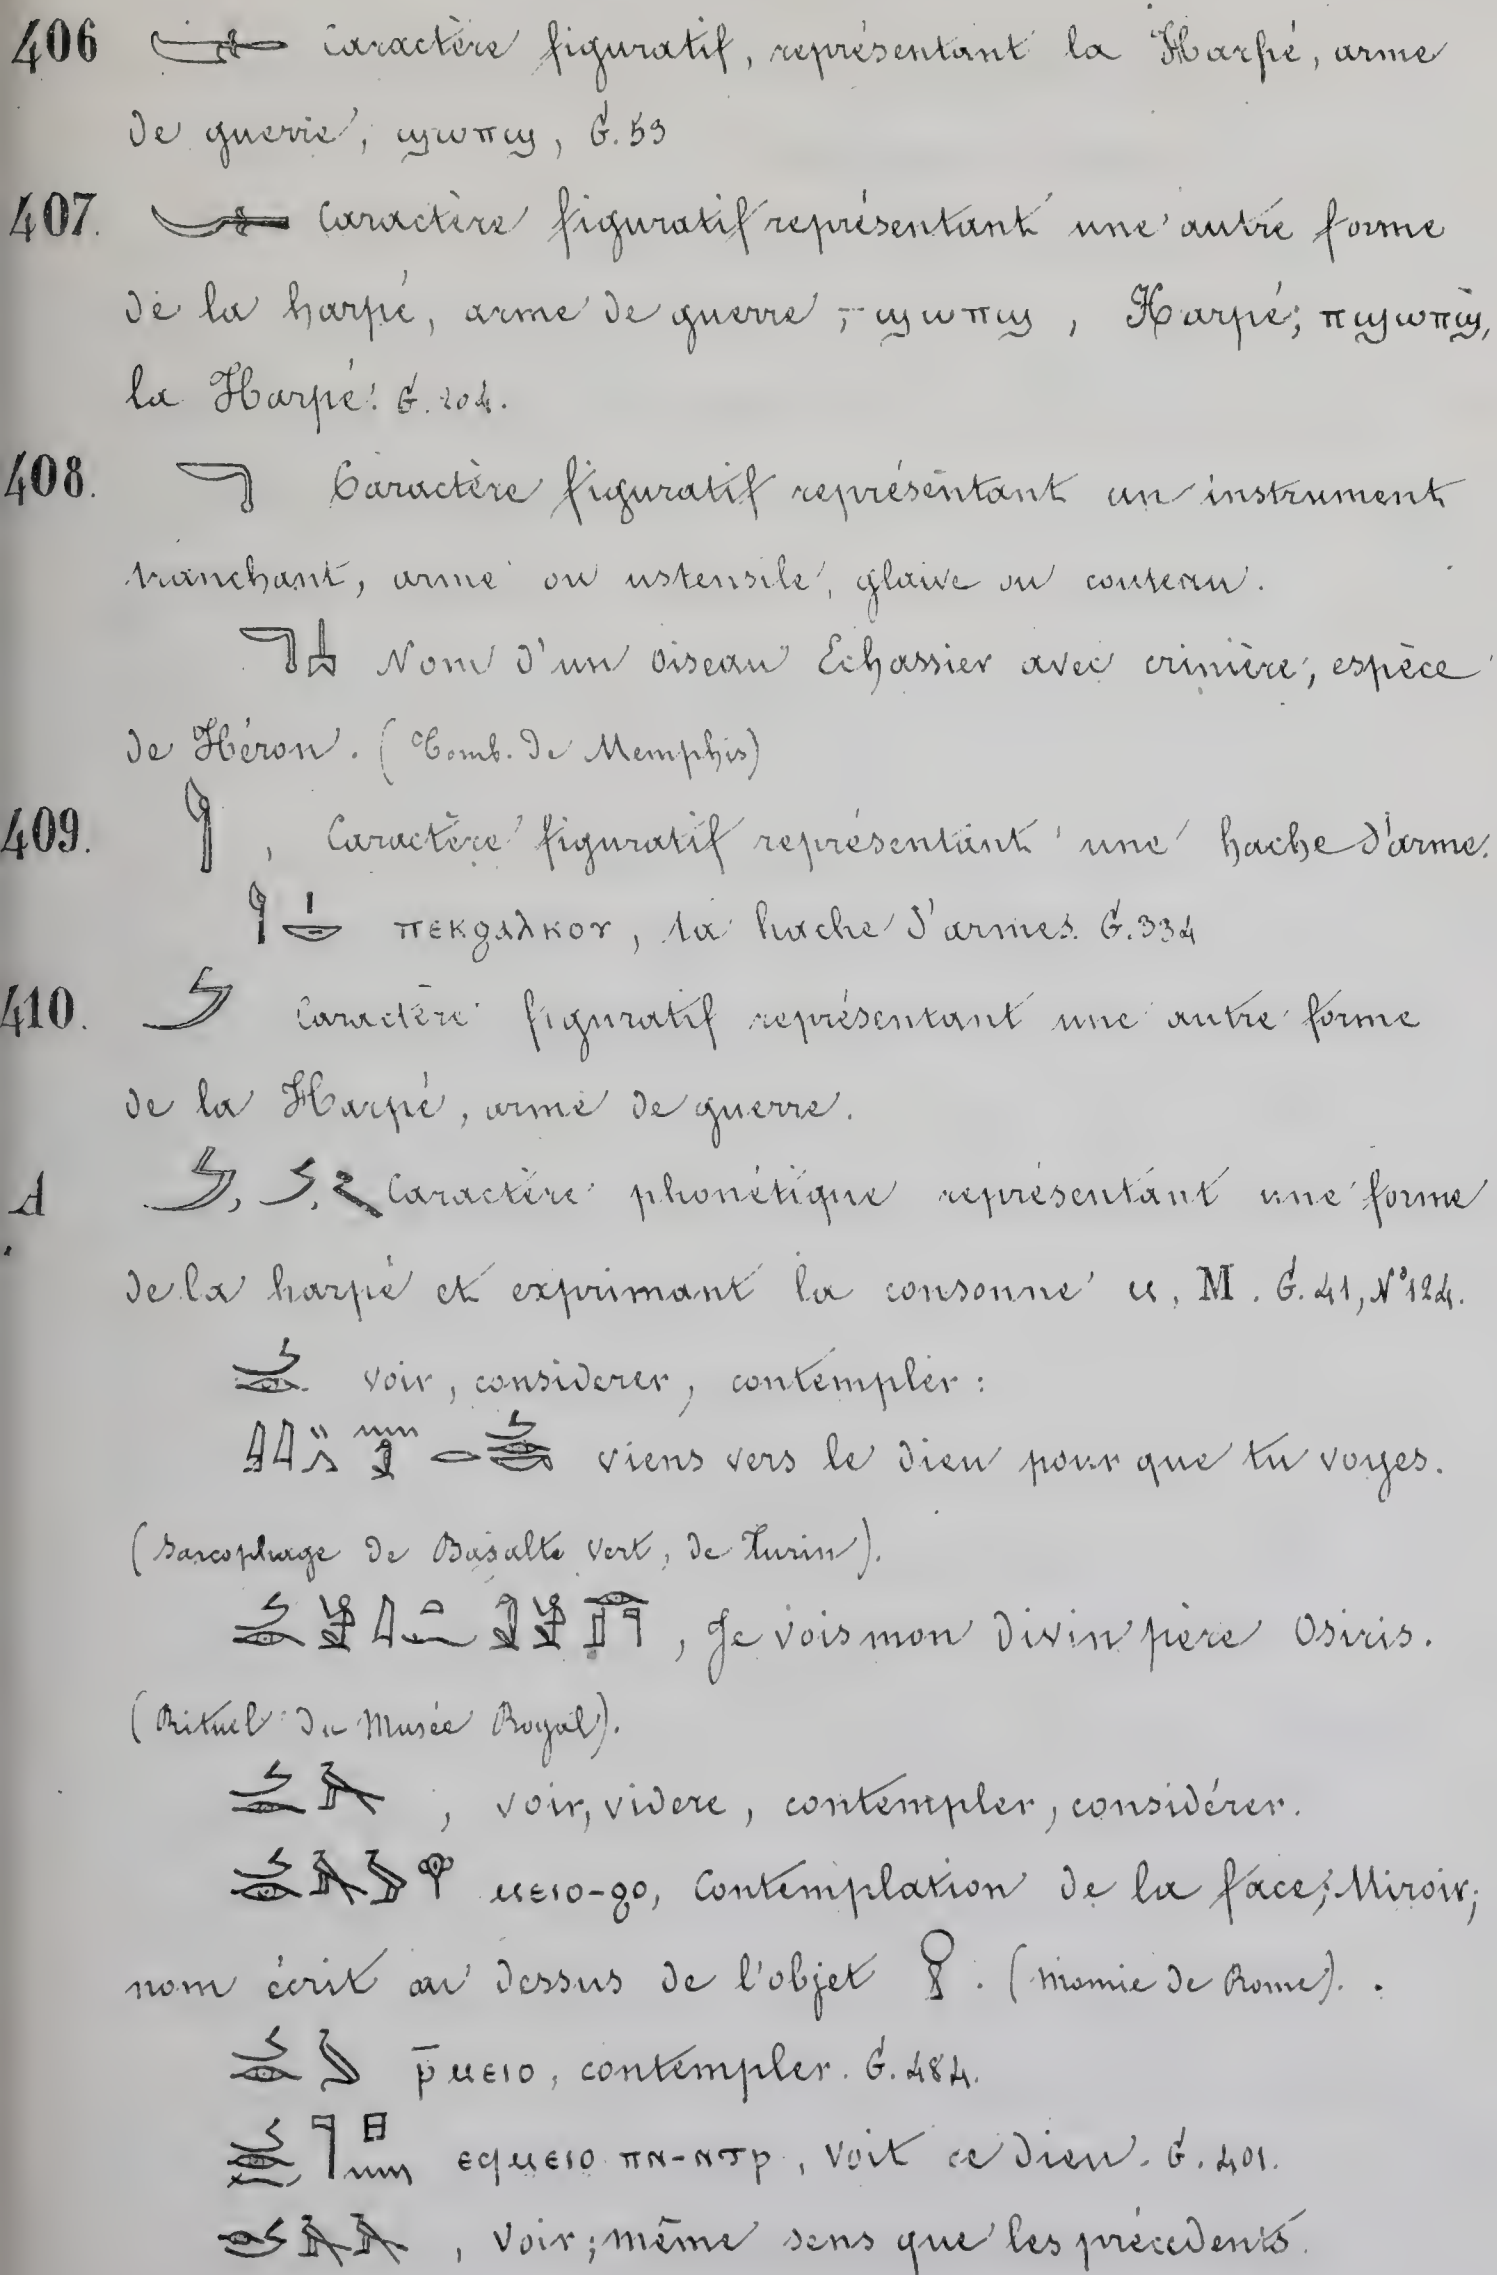 406 Caractère figuratif, représentant la Harpé, arme
de guerre, ϣωπϣ, G. 53
407. Caractère figuratif représentant une autre forme
de la harpé, arme de guerre, ϣωπϣ, Harpé; πϣωπϣ,
la Harpé. G. 204.
408. Caractère figuratif représentant un instrument
tranchant, arme ou ustensile, glaive ou couteau.
Nom d'un oiseau Echassier avec crinière, espèce
de Héron. (Tomb. de Memphis)
409. , Caractère figuratif représentant une hache d'arme.
ⲡⲉⲕϩⲁⲗⲕⲟⲩ, ta hache d'armes. G. 334
410. Caractère figuratif représentant une autre forme
de la Harpé, arme de guerre.
A , , Caractère phonétique représentant une forme
de la harpé et exprimant la consonne ⲙ, M. G. 41, N° 124.
voir, considerer, contempler:
viens vers le dieu pour que tu voyes.
(Sarcophage de Basalte vert, de Turin).
, Je vois mon divin père Osiris.
(Rituel du Musée Royal).
, voir, videre, contempler, considérer.
ⲙⲉⲓⲟ-ϩⲟ, Contemplation de la face; Miroir;
nom écrit au dessus de l'objet . (Momie de Rome).
ⲣ̄ⲙⲉⲓⲟ, contempler. G. 484.
ⲉϥⲙⲉⲓⲟ ⲡⲛ-ⲛⲧⲣ, voit ce dieu. G. 401.
, Voir; même sens que les précedents.